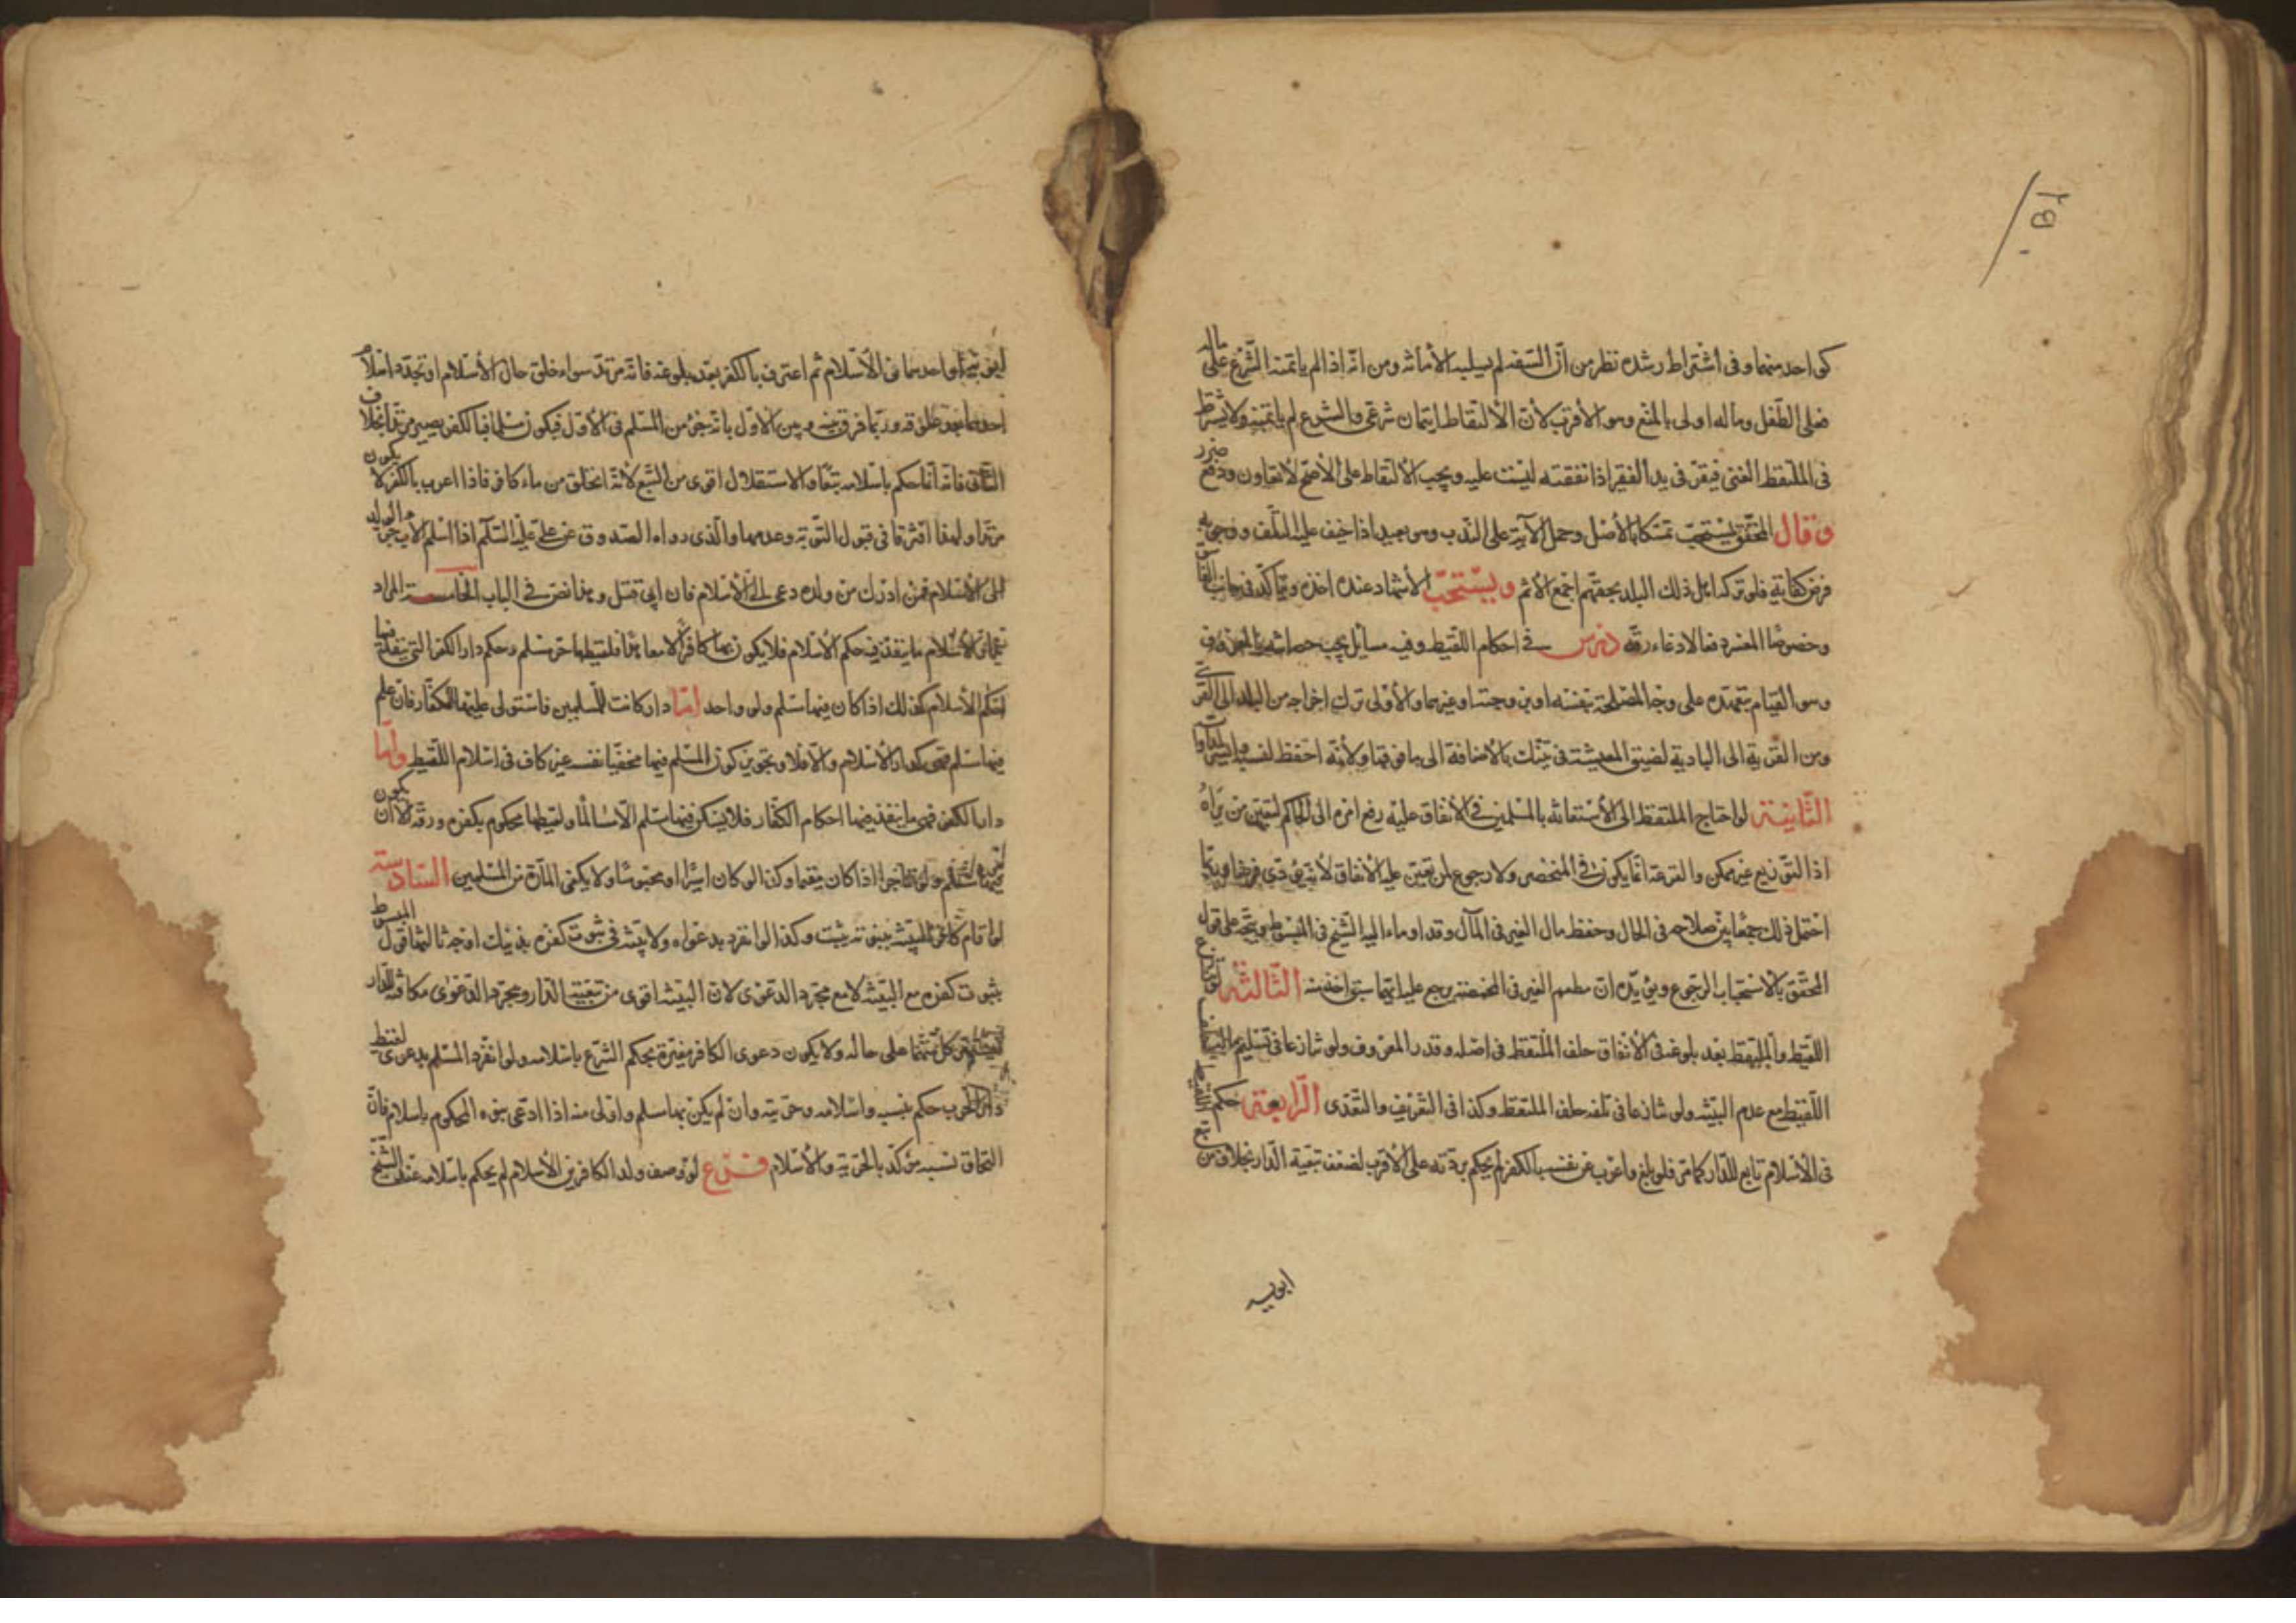 ٢٥٠
كواحد منهما وفى اشتراط رشده نظر من انّ السّفه لم يسلبه الأمانة ومن انّه اذا لم يأتمنه الشّرع على ماله
فعلى الطّفل وماله اولى بالمنع وهو الأقرب لأنّ الألتقاط ايتمان شرعى والشرع لم يأتمنه ولا يشترط
فى الملتقط الغنى فيقرّ فى يد الفقير اذ نفقته ليست عليه ويجب الألتقاط على الأصحّ لانّه تعاون ودفع ضرر
وقال المحقّق يستحبّ تمسّكا بالأصل وحمل الآية على النّدب وهو بعيد اذا خيف عليه التّلف ووجوبه
فرض كفاية فلو تركه اهل ذلك البلد بجمعهم اجمع الأثم ويستحبّ الأشهاد عند اخذه ويتأكّد فى جانب الفاسق
وخصوصا المعسر دفعا لادعاء رقّه درس فى احكام اللّقيط وفيه مسائل يجب حضانته بالمعروف
وهو القيام بتعهّده على وجه المصلحة بنفسه او بزوجته او غيرهما والأولى ترك اخراجه من البلد الى القرى
ومن القرية الى البادية لضيق المعيشة فى تينك بالأضافة الى ما فوقها ولأنّه احفظ لنسبه وايسر لمداواته
الثّانية لو احتاج الملتقط الى الأستعانة بالمسلمين فى الأنفاق عليه رفع امره الى الحاكم ليعيّن من يراه
اذ التّوزيع غير ممكن والقرعة انّما يكون فى المنحصر ولا رجوع لمن تعيّن عليه الأنفاق لانّه يؤدّى فرضا وربّما
احتمل ذلك جمعا بين صلاحه فى الحال وحفظ مال الغير فى المآل وقد اوماء اليه الشّيخ فى المبسوط ويتّجه على قول
المحقّق بالاستحباب الرّجوع ويؤيّده انّ مطعم الغير فى المخمصة يرجع عليه اتّما سبق اخفيته الثّالثة لو تنازع
اللّقيط والملتقط بعد بلوغه فى الأنفاق حلف الملتقط فى اصله وقدر المعروف ولو تنازعا فى تسليم ماله اليه حلف
اللّقيط مع عدم البيّنة ولو تنازعا فى تلفه حلف الملتقط وكذا فى التّفريط والتّعدّى الرّابعة حكم اللّقيط
فى الأسلام تابع للدّار كما مرّ فلو بلغ واعرب عن نفسه بالكفر لم يحكم بردّته على الأقرب لضعف تبعيّة الدّار بخلاف من تبع
ابويه
ابويه او احدهما فى الأسلام ثم اعترف بالكفر بعد بلوغه فانّه مرتدّ سواء خلق حال الأسلام او تجدّد اسلام
احدهما بعد خلقه وربّما فرق بينه وبين الأوّل بانّه جزء من المسلم فى الأوّل فيكون مسلما فبالكفر يصير مرتدّا بخلاف
الثّانى فانّه انّما حكم باسلامه تبعا والاستقلال اقوى من التّبع لأنّه انخلق من ماء كافر فاذا اعرب بالكفر لا يكون
مرتدّا ولهذا افترقا فى قبول التّوبة وعدمها والّذى رواه الصّدوق عن علىّ عليه السّلام اذا اسلم الأب جرّ الولد
الى الأسلام فمن ادرك من ولده دعى الى الأسلام فان ابى قتل وهذا نصّ فى الباب الخامسة المراد
بدار الأسلام ما ينفذ فيه حكم الأسلام فلا يكون بها كافر الّا معاهدا فلقيطها حرّ مسلم وحكم دار الكفر التى ينفذ فيها
احكام الأسلام كذلك اذا كان فيها مسلم ولو واحد امّا دار كانت للمسلمين فاستولى عليها الكفّار فان علم
فيها مسلم فهى كدار الأسلام والّا فلا وتجويز كون المسلم فيها مخفيا نفسه غير كاف فى اسلام اللّقيط وامّا
دار الكفر فهى ما ينفذ فيها احكام الكفّار فلا يسكن فيها مسلم الّا مسالما ولقيطها محكوم بكفره ورقّه الّا ان يكون
فيها مسلم ولو تاجرا اذا كان مقيما وكذا لو كان اسيرا او محبوسا ولا يكفى المارّة من المسلمين السّادسة
لو اقام كافر البيّنة ببنوّته يثبت وكذا لو انفرد بدعواه ولا بيّنة فى ثبوت كفره بذينك اوجه ثالثها قول المبسوط
بثبوت كفره مع البيّنة لا مع مجرّد الدّعوى لانّ البيّنة اقوى من تبعيّة الدّار ومجرّد الدّعوى مكافئة للدّار
فيستمرّ كلّ منهما على حاله ولا يكون دعوى الكافر مغيّرة بحكم الشّرع باسلامه ولو انفرد المسلم بدعوى لقيط
دار الحرب حكم بنسبه واسلامه وحريّته وان لم يكن بها مسلم واولى منه اذا ادعى بنوّه المحكوم باسلام فانّ
التحاق نسبه مؤكّد بالحريّة والأسلام فرع لو وصف ولد الكافرين الأسلام لم يحكم باسلامه عند الشّيخ